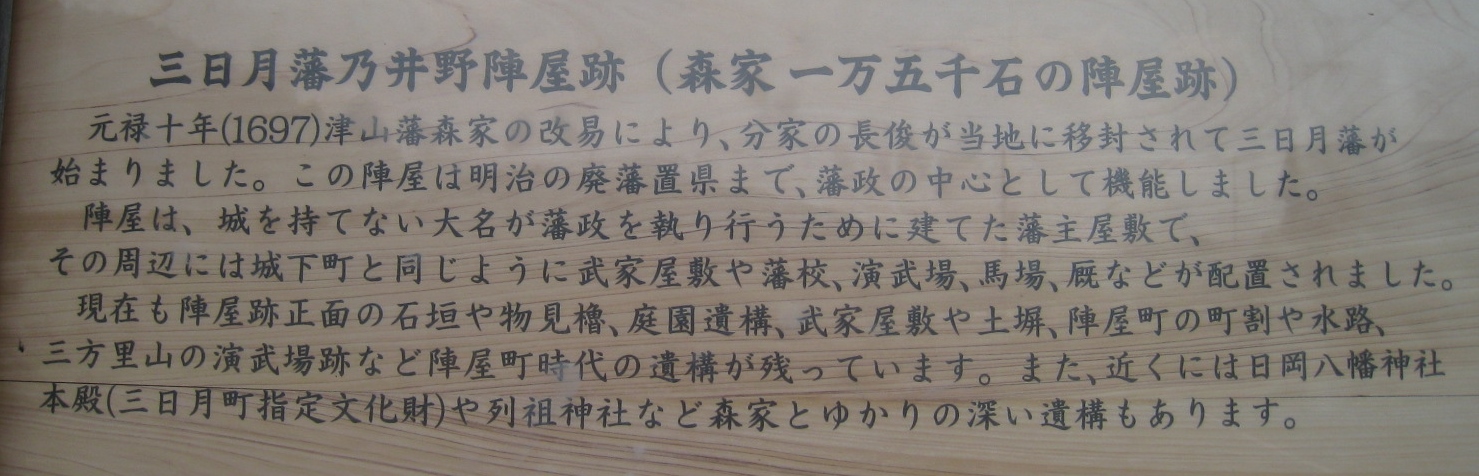 三日月藩乃井野陣屋跡（森家 一万五千石の陣屋跡）
元禄十年(1697)津山藩森家の改易により、分家の長俊が当地に移封されて三日月藩が
始まりました。この陣屋は明治の廃藩置県まで、藩政の中心として機能しました。
陣屋は、城を持てない大名が藩政を執り行うために建てた藩主屋敷で、
その周辺には城下町と同じように武家屋敷や藩校、演武場、馬場、厩などが配置されました。
現在も陣屋跡正面の石垣や物見櫓、庭園遺構、武家屋敷や土塀、陣屋町の町割や水路、
三方里山の演武場跡など陣屋町時代の遺構が残っています。また、近くには日岡八幡神社
本殿(三日月町指定文化財)や列祖神社など森家とゆかりの深い遺構もあります。